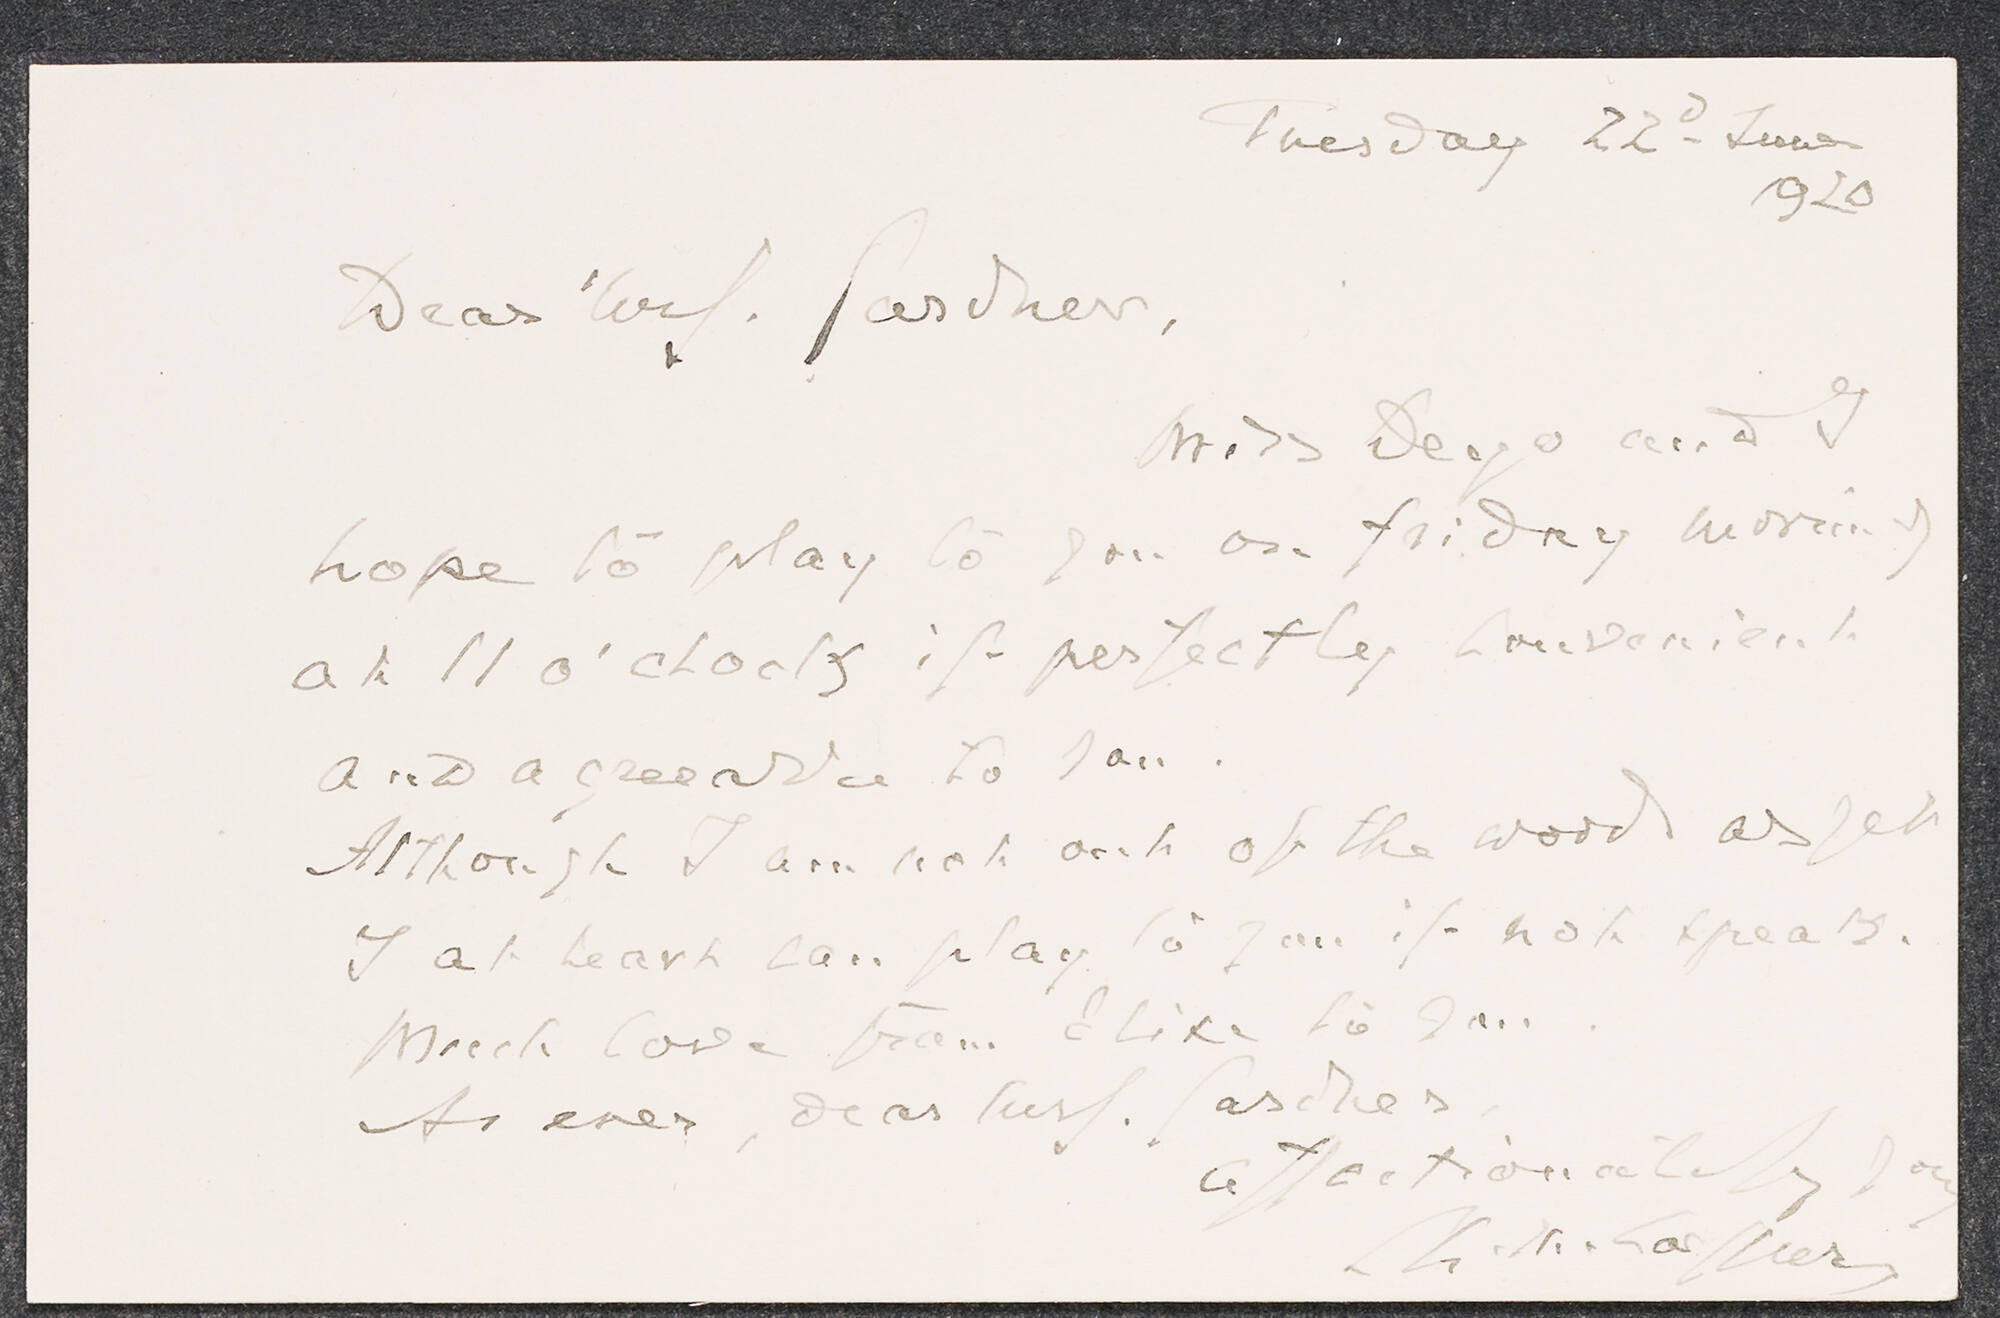 Tuesday 22d June
1920
Dear Mrs. Gardner,
Miss Deyo and I
hope to play to you on friday morning
at 11 o'clock if perfectly convenient
and agreeable to you.
Although I am not out of the wood as yet
I at heart can play to you if not speak.
Much love from Elise to you.
As ever, dear Mrs. Gardner,
affectionately your
Loeffler